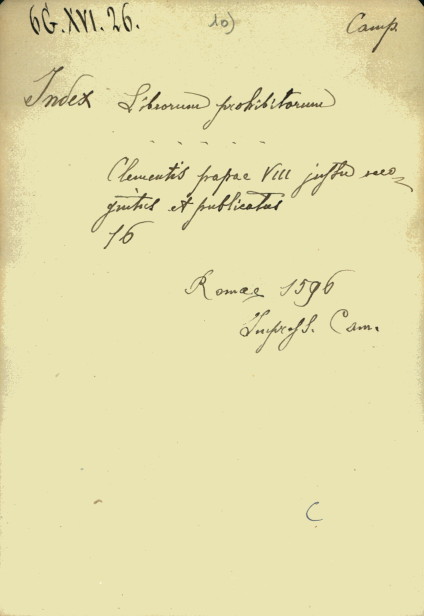 6G.XVI.26. 10) Camp.
Index Librorum prohibitorum
. . . . .
Clementis papae VIII jussu reco-
gnitus et publicatus
16
Romae 1596
Impress. Cam.
C